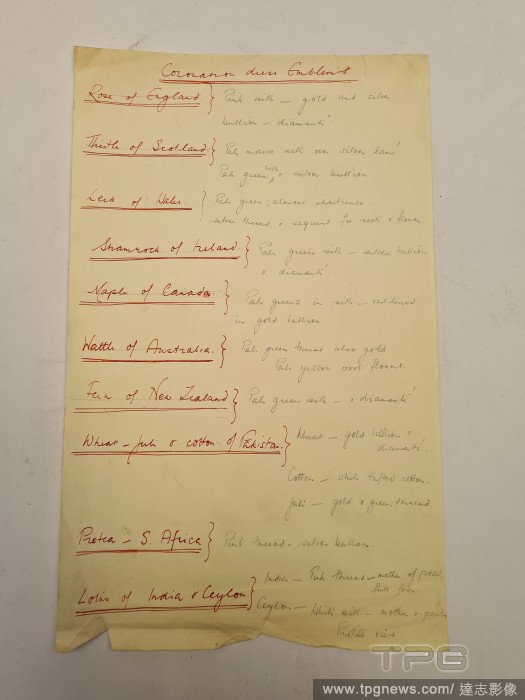 Coronation dress Emblems
Rose of England } Pink silk – gold and silver
bullion – diamanté
Thistle of Scotland } Pale mauve silk over silver lamé
Pale green silk & silver bullion
Leek of Wales } Pale green, almost chartreuse
silver thread & sequins for roots & flower.
Shamrock of Ireland } Pale green silk – silver bullion
& diamanté
Maple of Canada } Pale green in silk – outlined
in gold bullion
Wattle of Australia } Pale green thread also gold
Pale yellow wool flowers.
Fern of New Zealand } Pale green silk – & diamanté
Wheat – Jute & cotton of Pakistan } Wheat – gold bullion &
diamanté.
Cotton – white tufted cotton.
Jute – gold & green thread.
Protea – S. Africa } Pink thread – silver bullion
Lotus of India & Ceylon } India – Pink thread – mother of pearl
full face.
Ceylon – White silk – mother of pearl
Profile view
TPG
www.tpgnews.com/達志影像